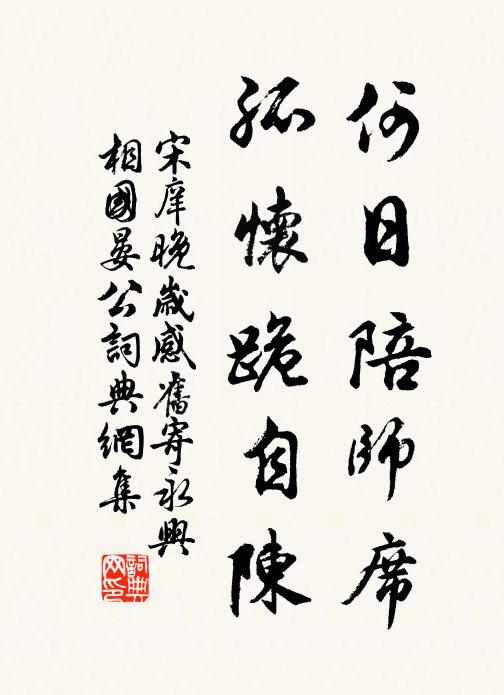 何日陪師席
孤懷跪自陳
宋庠晚歲感舊寄永興
相國晏公詞典網集
詞典
网印